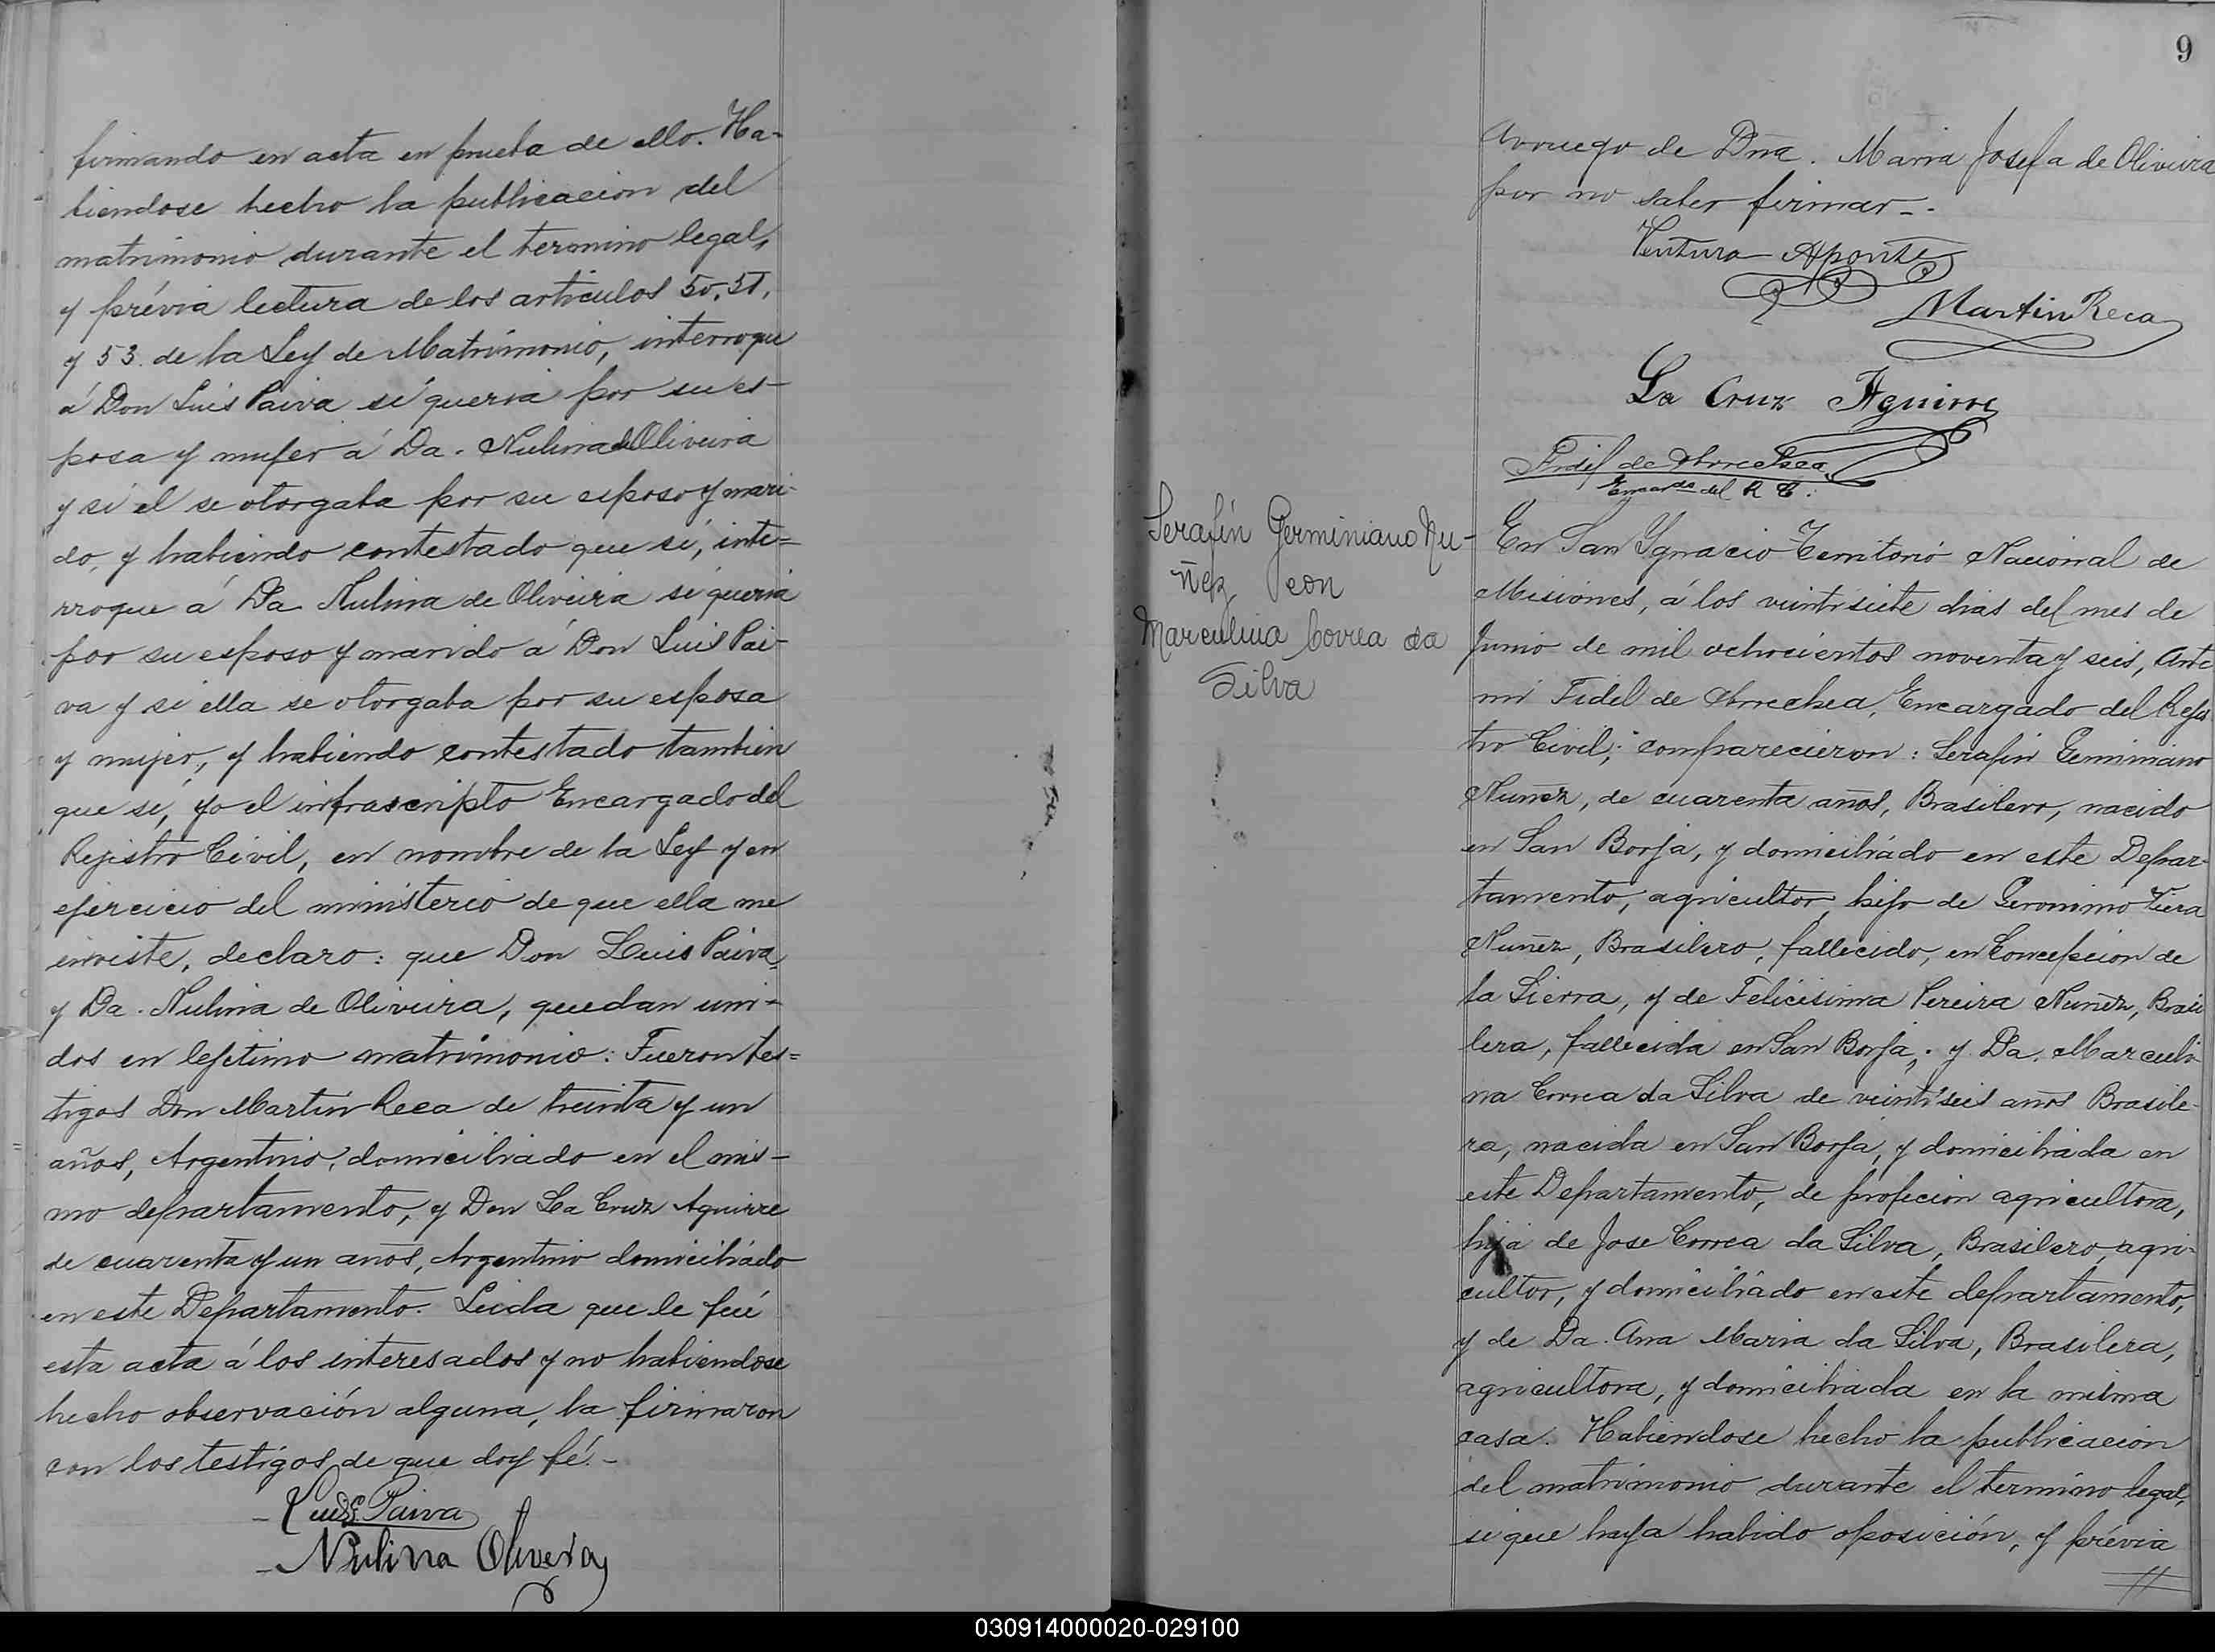 firmando en acta en prueba de ello. Ha-
biendose hecho la publicacion del
matrimonio durante el termino legal,
y prévia lectura de los articulos 50, 51,
y 53. de la Ley de Matrimonio, interrogue
á Don Luis Paiva si queria por su es-
posa y mujer á Da. Nulina de Oliveira
y si el se otorgaba por su esposo y mari-
do, y habiendo contestado que sí, inte=
rroque á Da Nulina de Oliveira si queria
por su esposo y marido á Don Luis Pai-
va y si ella se otorgaba por su esposa
y mujer, y habiendo contestado tambien
que sí, yo el infrascripto Encargado del
Rejistro Civil, en nombre de la Ley y en
ejercicio del ministerio de que ella me
inviste, declaro: que Don Luis Paiva,
y Da. Nulina de Oliveira, quedan uni-
dos en lejitimo matrimonio: Fueron tes=
tigos Don Martin Reca de treinta y un
años, Argentino, domiciliado en el mis-
mo departamento, y Don La Cruz Aguirre
de cuarenta y un años, Argentino domiciliado
en este Departamento. Leida que le fué
esta acta á los interesados y no habiendose
hecho observación alguna, la firmaron
con los testigos de que doy fé.-
Luis Paiva
Nulina Olivera
9
Arruego de Dña. Maria Josefa de Oliveira
por no saber firmar-.
Ventura Aponte
Martin Reca
La Cruz Aguirre
Fidel de Arrechea
Encardo del R C.
Serafín Germiniano Nu-
ñez con
Marculina Correa da
Silva
En San Ygnacio Territorio Nacional de
Misiones, á los veintisiete dias del mes de
Junio de mil ochocientos noventa y seis, Ante
mi Fidel de Arrechea, Encargado del Rejis
tro Civil; comparecieron: Serafin Germiniano
Nuñez, de cuarenta años, Brasilero, nacido
en San Borja, y domiciliádo en este Depar-
tamento, agricultor, hijo de Geronimo Viera
Nuñez, Brasilero, fallecido, en Concepcion de
la Sierra, y de Felicisima Pereira Nuñez, Brasi
lera, fallecida en San Borja,. y Da. Marculi-
na Correa da Silva de veintiseis años Brasile-
ra, nacida en San Borja, y domiciliada en
este Departamento, de profecion agricultora,
hija de Jose Correa da Silva, Brasilero, agri-
cultor, y domiciliádo en este departamento,
y de Da. Ana Maria da Silva, Brasilera,
agricultora, y domiciliada en la misma
casa. Habiendose hecho la publicacion
del matrimonio durante el termino legal,
si que haya habido oposición, y prévia
//
030914000020-029100